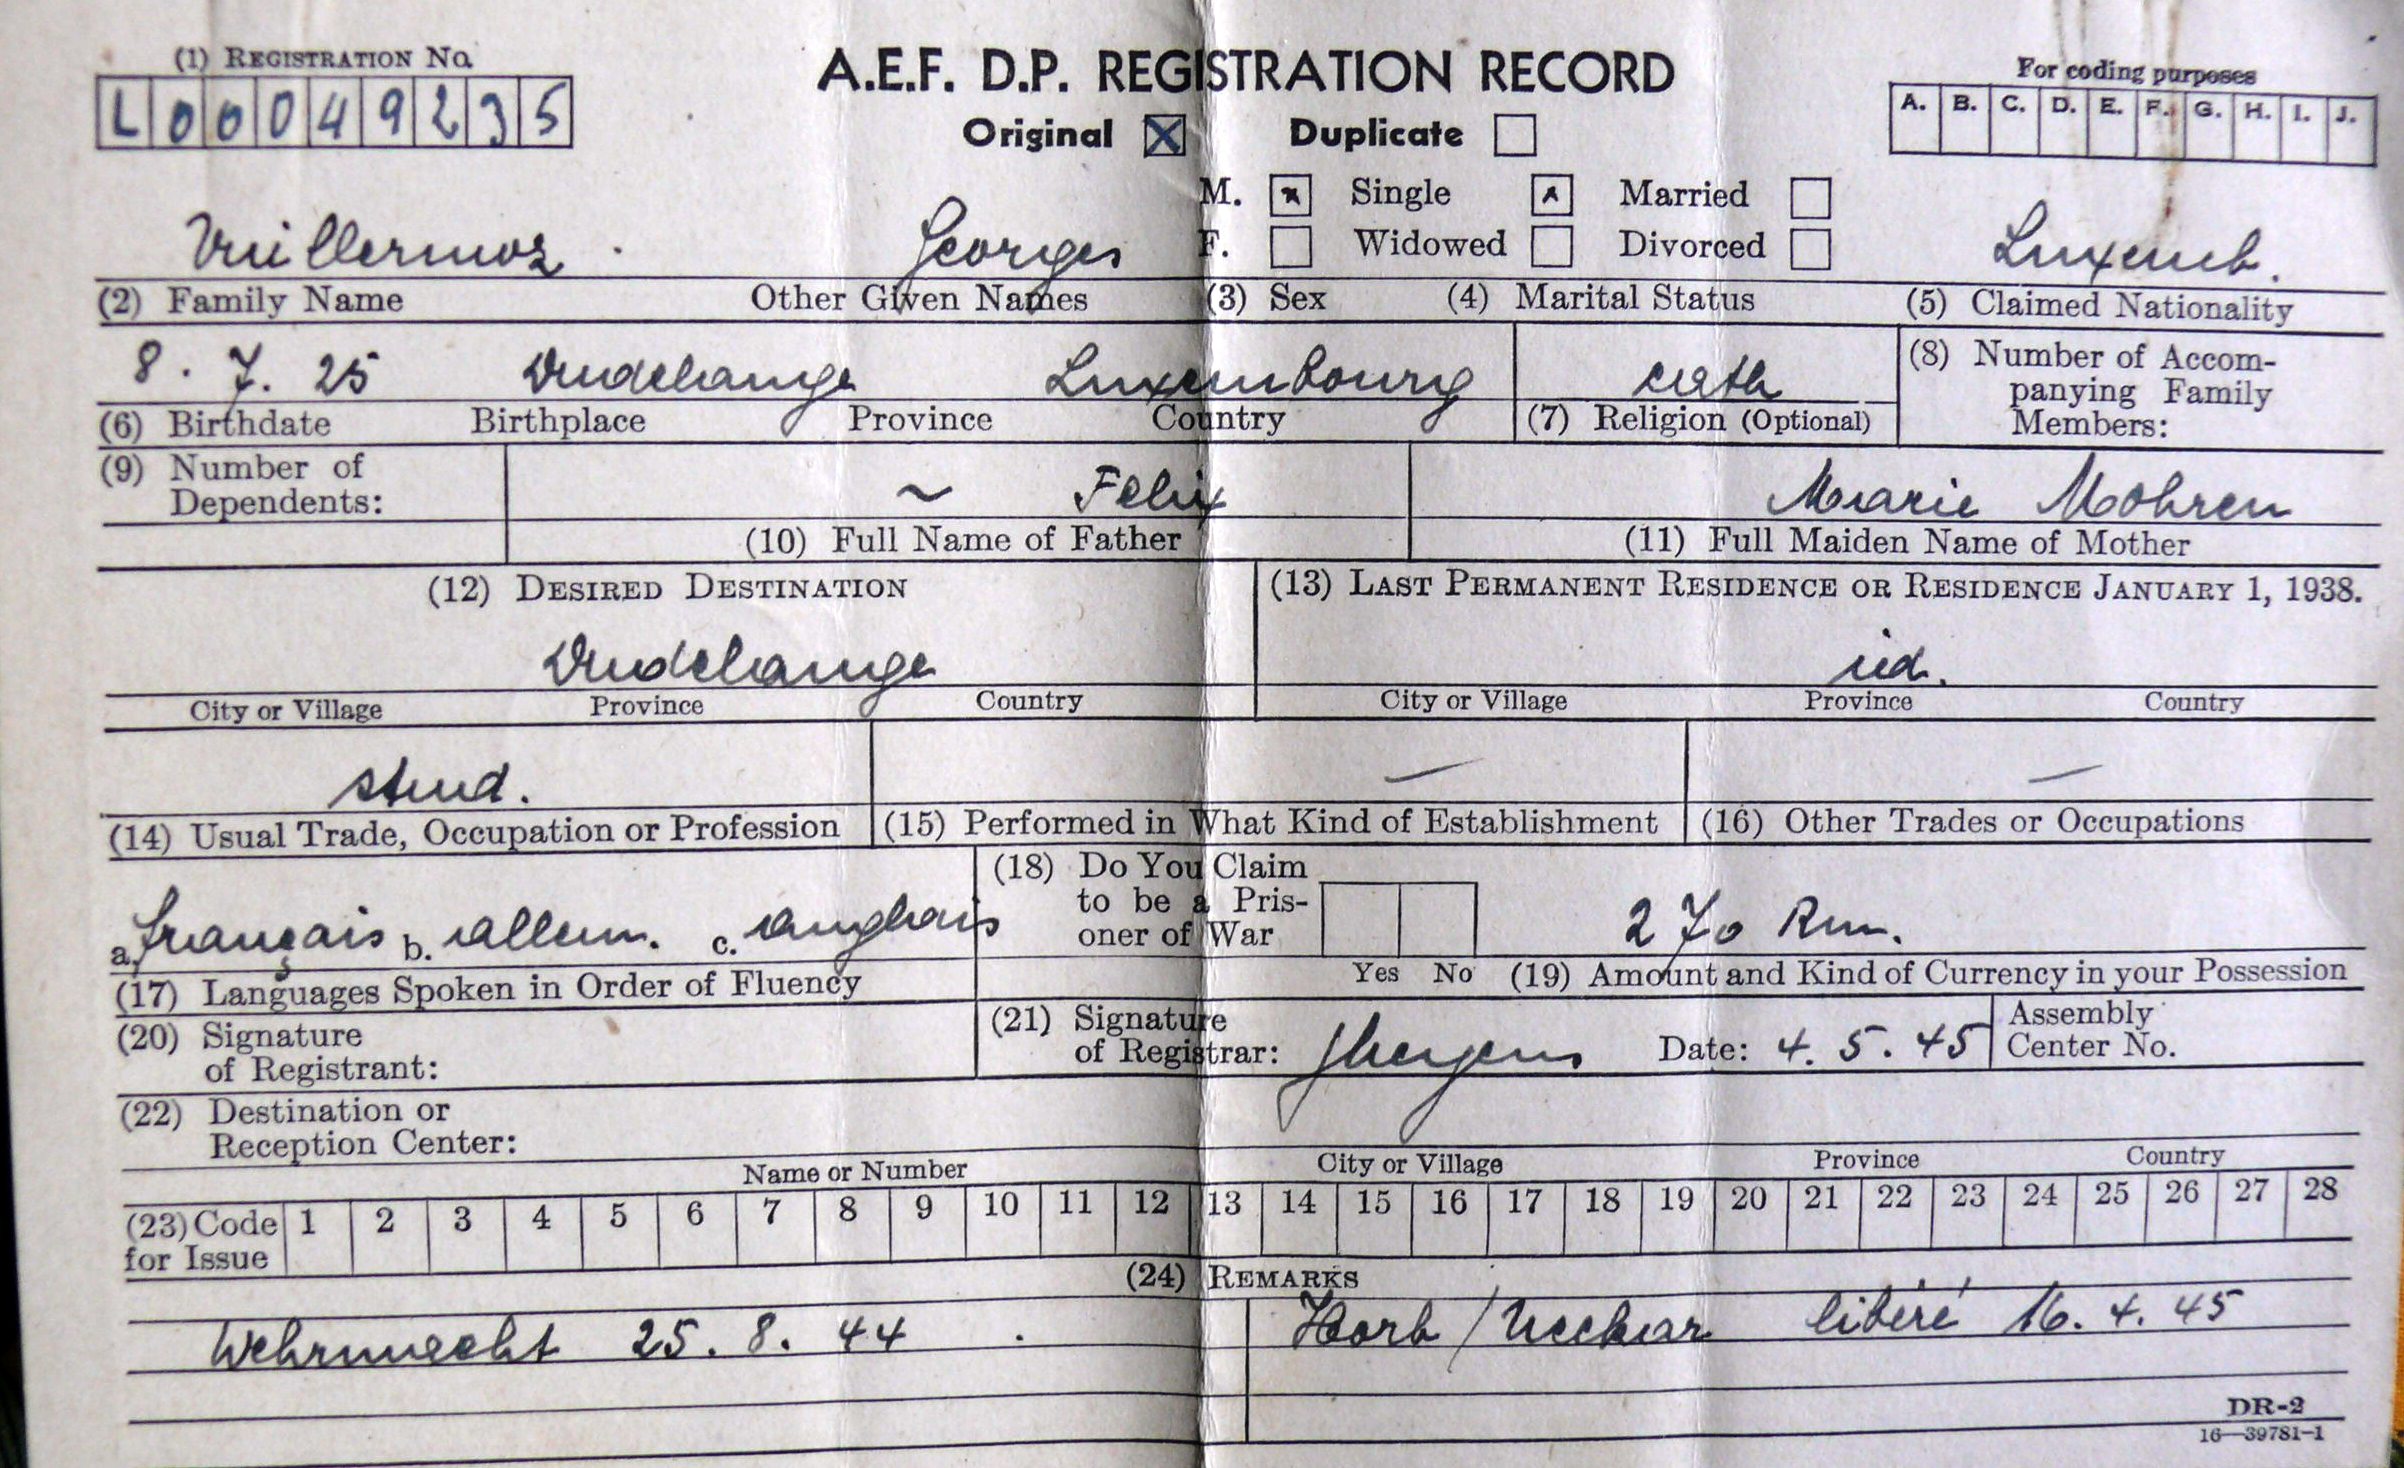 (1) REGISTRATION No.
L00049235
A.E.F. D.P. REGISTRATION RECORD
Original X Duplicate
For coding purposes
A. B. C. D. E. F. G. H. I. J.
M. x Single x Married
F. Widowed Divorced
Vuillermoz Georges Luxemb.
(2) Family Name Other Given Names (3) Sex (4) Marital Status (5) Claimed Nationality
8. 7. 25 Dudelange Luxembourg cath
(6) Birthdate Birthplace Province Country (7) Religion (Optional)
(8) Number of Accom-
panying Family
Members:
(9) Number of
Dependents:
~ Felix Marie Mohren
(10) Full Name of Father (11) Full Maiden Name of Mother
(12) DESIRED DESTINATION (13) LAST PERMANENT RESIDENCE OR RESIDENCE JANUARY 1, 1938.
Dudelange id.
City or Village Province Country City or Village Province Country
stud. — —
(14) Usual Trade, Occupation or Profession (15) Performed in What Kind of Establishment (16) Other Trades or Occupations
a. français b. allem. c. anglais
(17) Languages Spoken in Order of Fluency
(18) Do You Claim
to be a Pris-
oner of War
Yes No
270 Rm.
(19) Amount and Kind of Currency in your Possession
(20) Signature
of Registrant:
(21) Signature
of Registrar: Date: 4. 5. 45
Assembly
Center No.
(22) Destination or
Reception Center:
Name or Number City or Village Province Country
(23) Code
for Issue
1 2 3 4 5 6 7 8 9 10 11 12 13 14 15 16 17 18 19 20 21 22 23 24 25 26 27 28
(24) REMARKS
Wehrmacht 25. 8. 44 . Horb / Neckar libéré 16. 4. 45
DR-2
16—39781-1